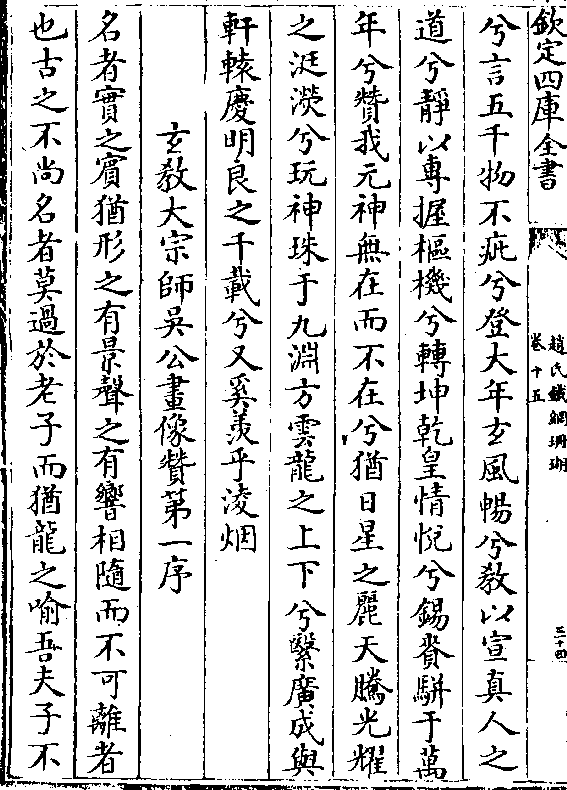 欽定四庫全書
趙氏鐵網珊瑚
卷十五
三十四
兮言五千物不疵兮登大年玄風暢兮教以宣真人之
道兮靜以專握樞機兮轉坤乾皇情悅兮錫賚駢于萬
年兮贊我元神無在而不在兮猶日星之麗天騰光耀
之涎濙兮玩神珠于九淵方雲龍之上下兮繄廣成與
軒轅慶明良之千載兮又奚羨乎淩烟
玄教大宗師吳公畫像贊第一序
名者實之賓猶形之有景聲之有響相隨而不可離者
也古之不尚名者莫過於老子而猶龍之喻吾夫子不